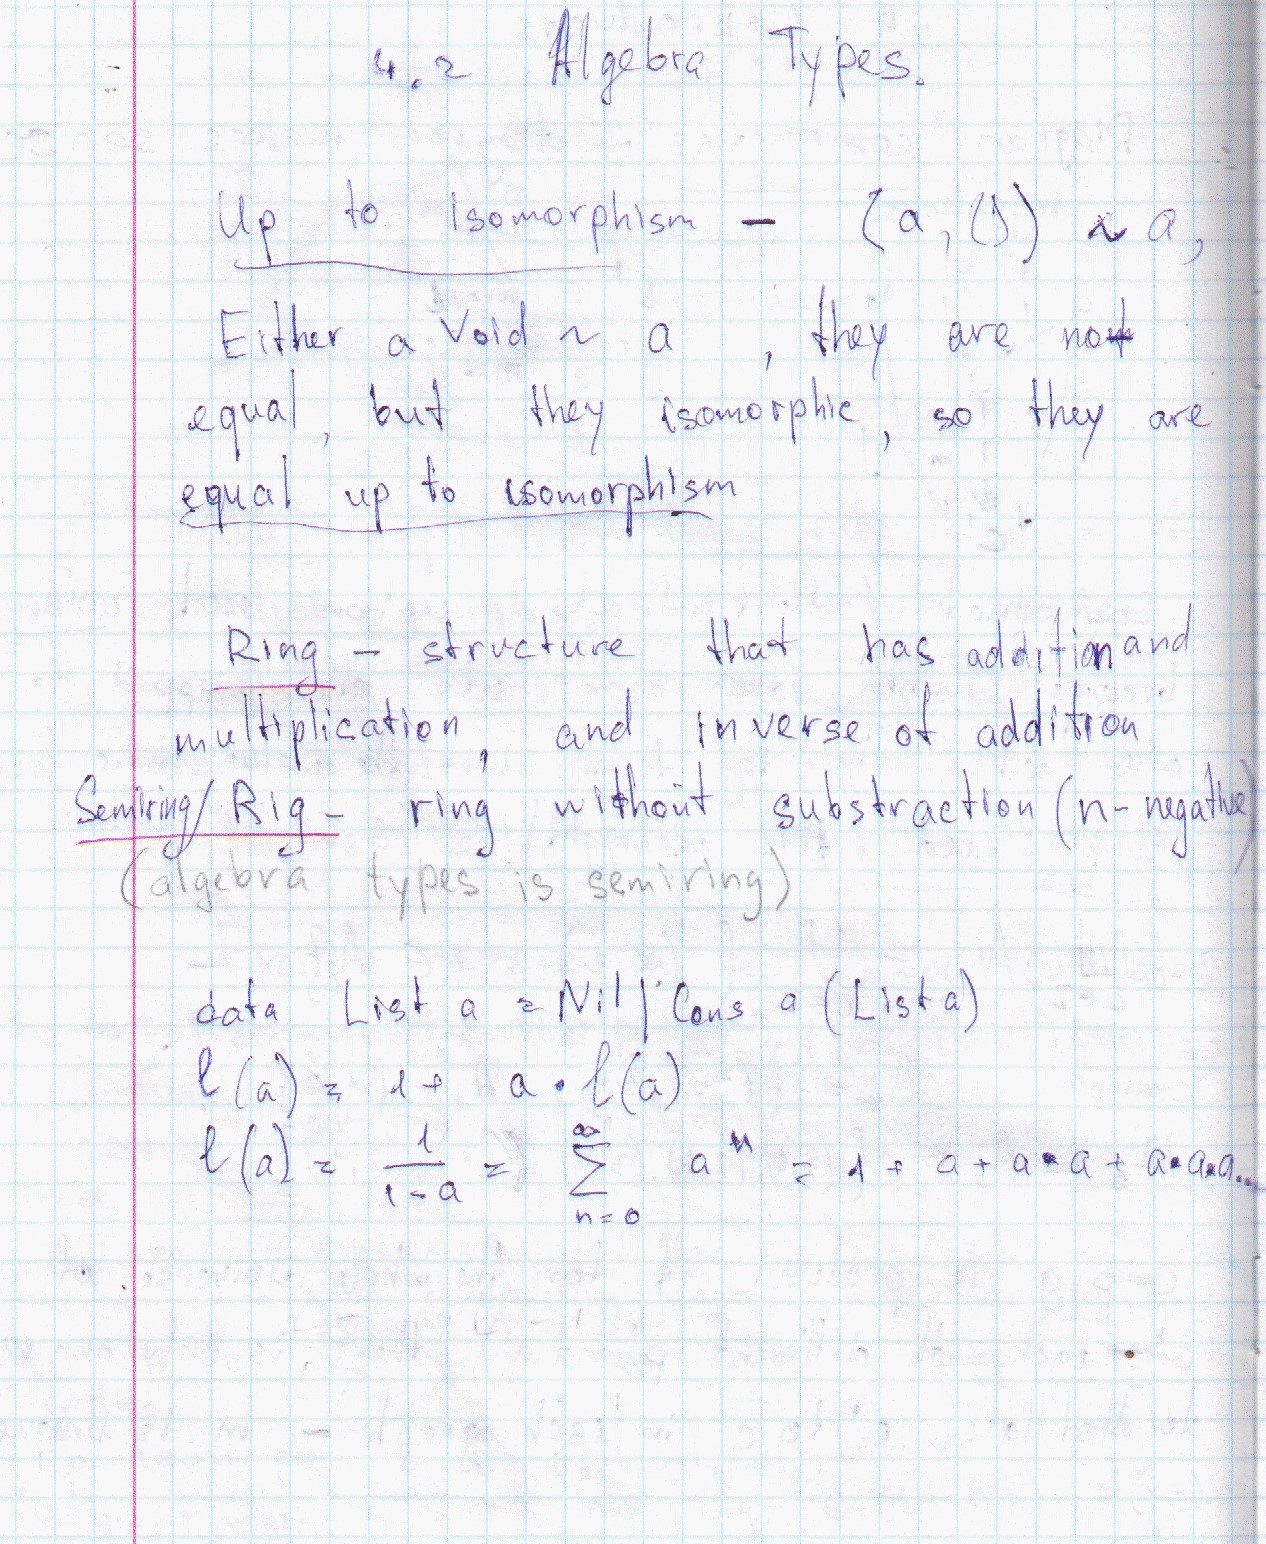 4.2 Algebra Types.
Up to isomorphism - (a, ()) ~ a,
Either a Void ~ a , they are not
equal, but they isomorphic, so they are
equal up to isomorphism
Ring - structure that has addition and
multiplication, and inverse of addition
Semiring/Rig - ring without substraction (n-negative)
(algebra types is semiring)
data List a = Nil | Cons a (List a)
l(a) = 1 + a · l(a)
l(a) = 1/(1-a) = ∑_{n=0}^{∞} a^n = 1 + a + a·a + a·a·a...